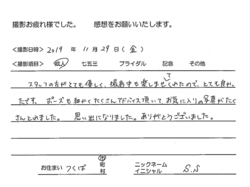 撮影お疲れ様でした。 感想をお願いいたします。
<撮影日時> 2019 年 11 月 29 日 ( 金 )
<撮影項目> 成人 七五三 ブライダル 記念 その他
スタッフの方がとても優しく、撮影中も楽しませてくれたので、とても良か
ったです。ポーズも細かくたくさんアドバイス頂いて、お気に入りの写真がたく
さんとれました。思い出になりました。ありがとうございました。
お住まい つくば 町 村 ニックネーム イニシャル S.S